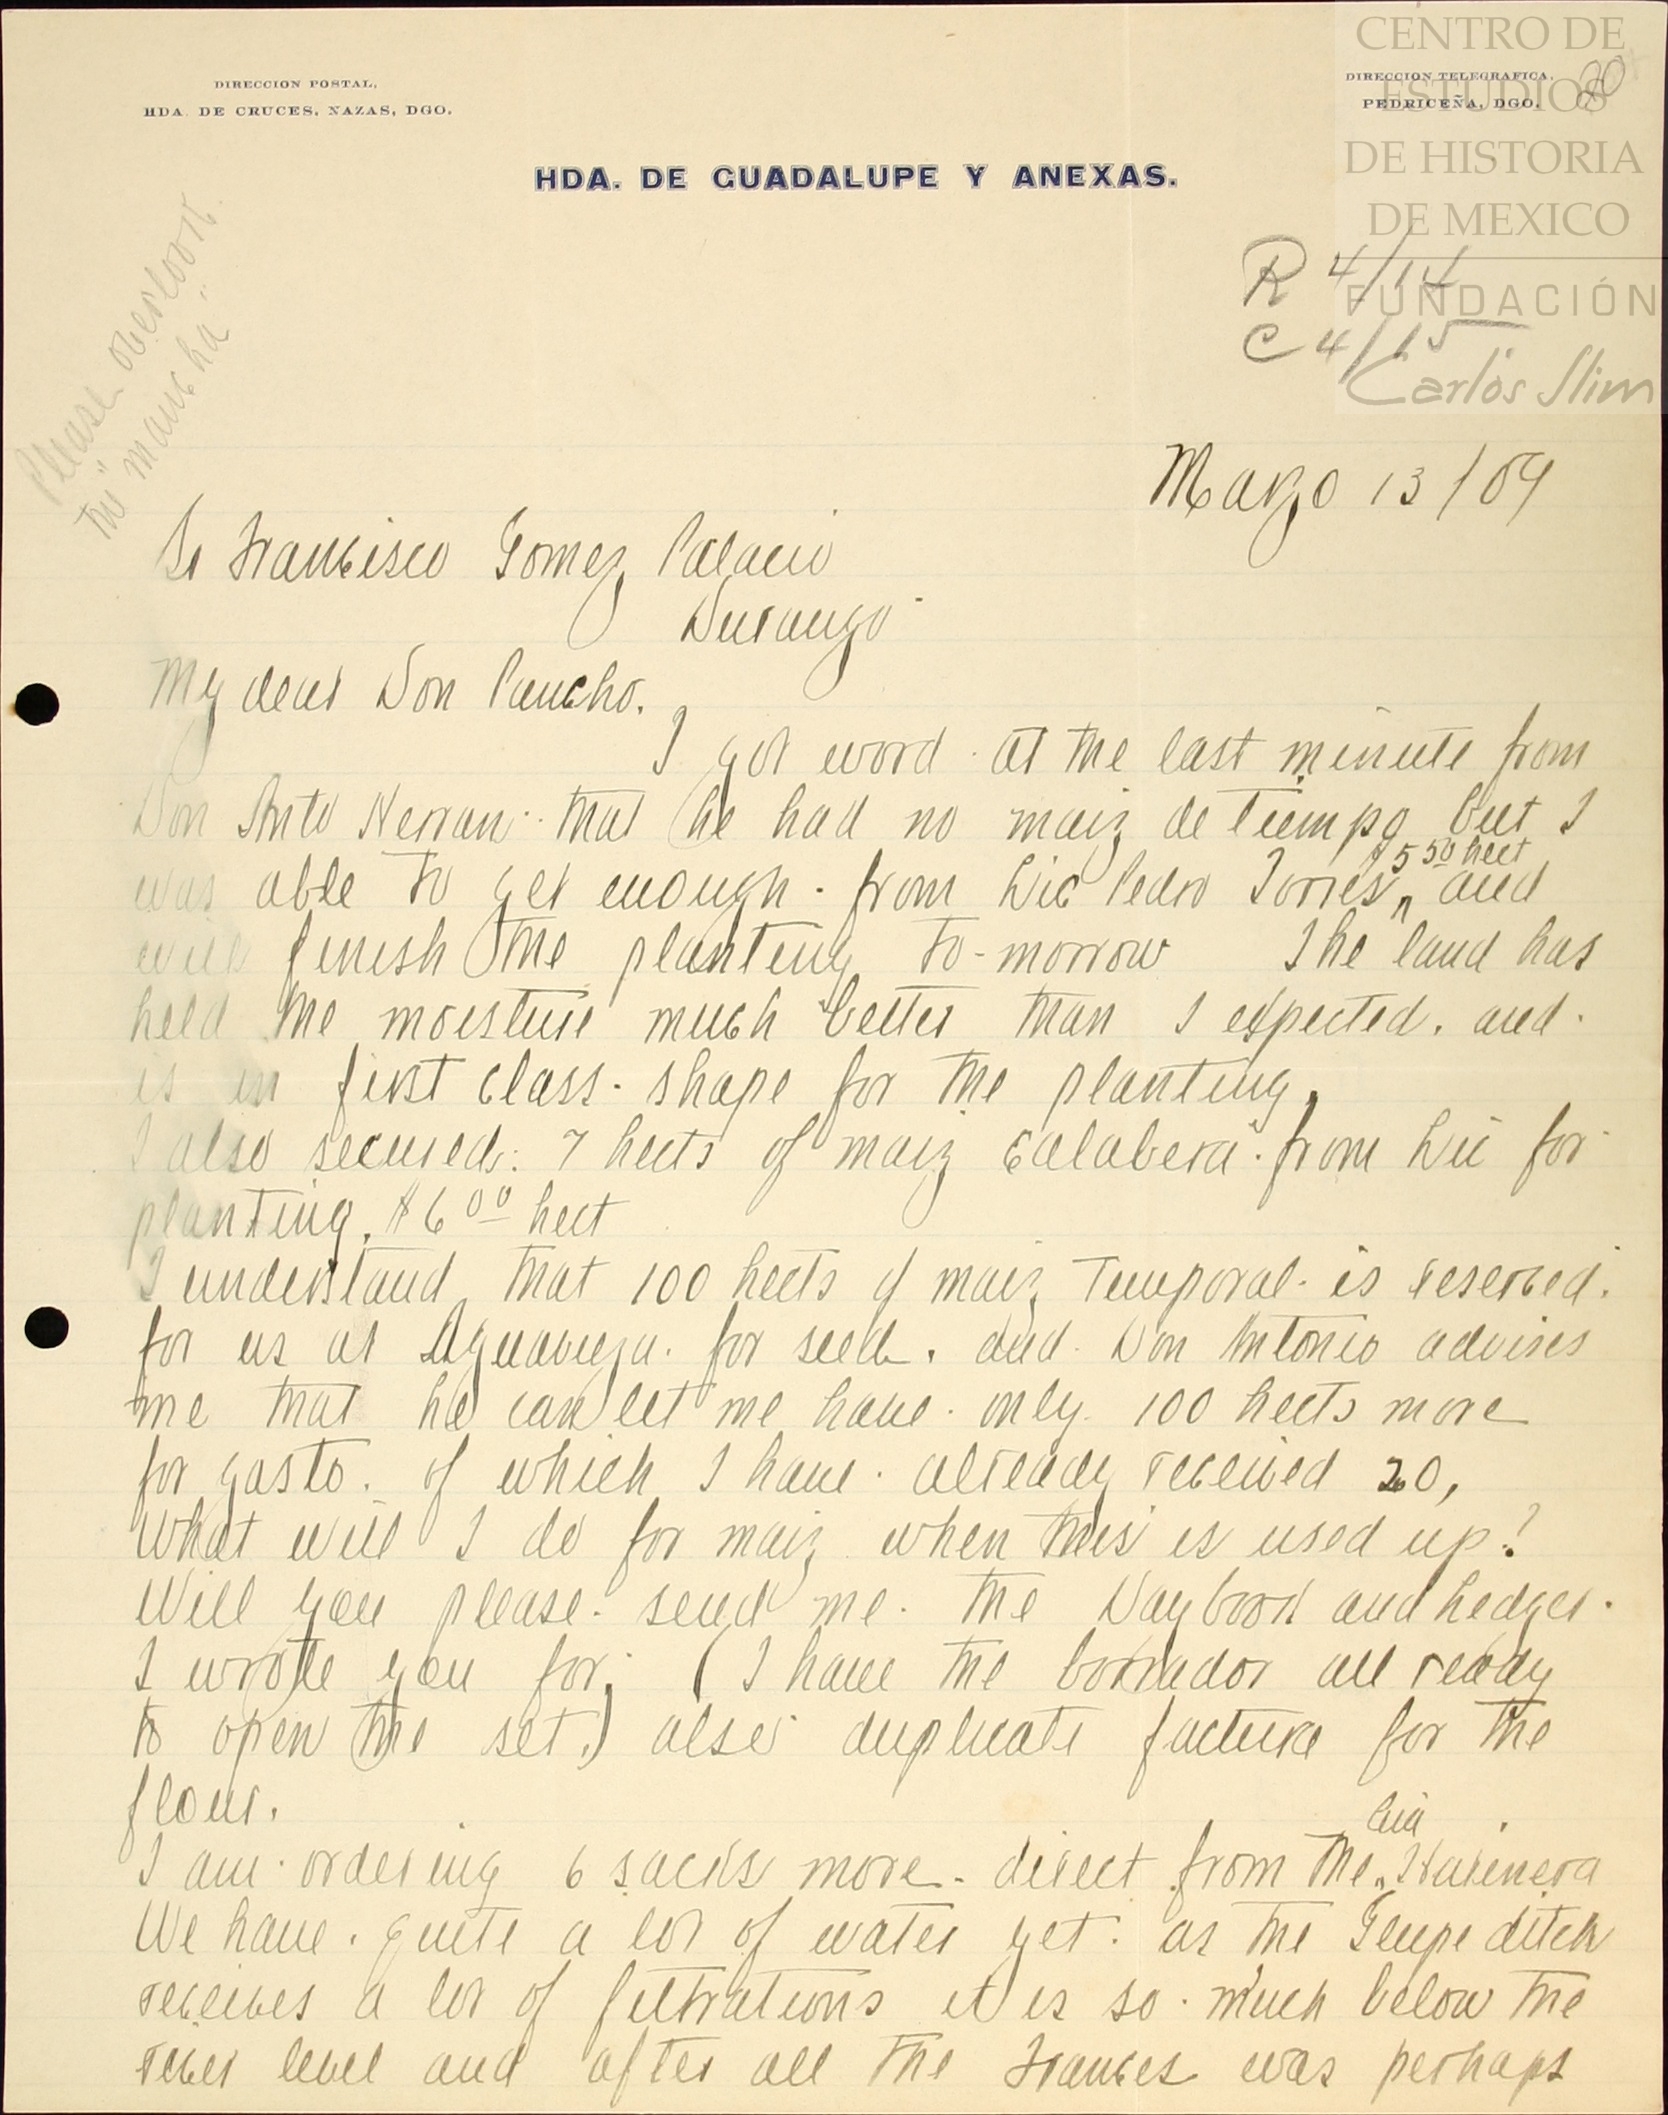 DIRECCION POSTAL,
HDA. DE CRUCES, NAZAS, DGO.
DIRECCION TELEGRAFICA,
PEDRICEÑA, DGO.
20
CENTRO DE
ESTUDIOS
DE HISTORIA
DE MEXICO
FUNDACIÓN
Carlos Slim
HDA. DE GUADALUPE Y ANEXAS.
R 4/14
C 4/15
Please overlook
the "mancha"
Marzo 13/09
Sr Francisco Gomez Palacio
Durango
My dear Don Pancho.
I got word at the last minute from
Don Anto Herran that he had no maiz de tiempo but I
was able to get enough from Lic Pedro Torres, $5 50 hect and
will finish the planting to-morrow The land has
held the moisture much better than I expected. and
is in first class shape for the planting.
I also secured 7 hects of maiz calabera from Lic for
planting. $6 00 hect
I understand that 100 hects of maiz Temporal is reserved
for us at Aguavieja for seed. and Don Antonio advises
me that he can let me have only 100 hects more
for gasto. of which I have already received 20,
What will I do for maiz when this is used up?
Will you please send me the Daybook and Ledger
I wrote you for. (I have the borrador all ready
to open the set.) also duplicate factura for the
flour.
I am ordering 6 sacks more direct from the Cia Harinera
We have quite a lot of water yet. as the Glupe ditch
receives a lot of filtrations it is so much below the
river level and after all the Frances was perhaps